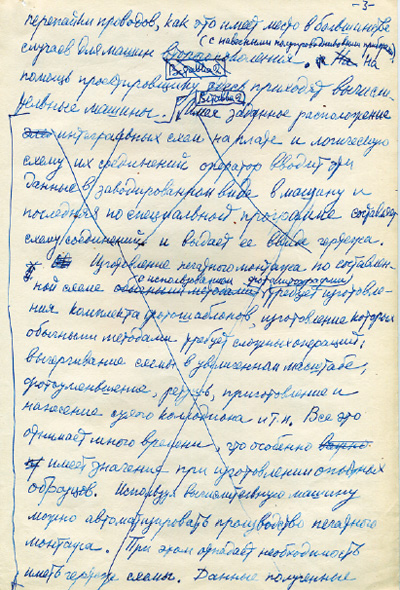 -3-
перепайки проводов, как это имеет место в большинстве
случаев для машин
(с навесными полупроводниковыми приборами)
На
Вставка 2
помощь проектировщику приходят вычисли
Вставка 2
тельные машины. Имея заданное расположение
интегральных схем на плате и логическую
схему их соединений оператор вводит эти
данные в закодированном виде в машину и
последняя по специальной программе составляет
схему соединений и выдает ее в виде чертежа.
Изготовление печатного монтажа по составлен-
с использованием фотолитографии
ной схеме обычными методами требует изготовле-
ния комплекта фотошаблонов, изготовление которых
обычными методами требует сложных операций;
вычерчивание схемы в увеличенном масштабе,
фотоуменьшение, ретушь, приготовление и
нанесение сухого коллодиона и т.п. Все это
отнимает много времени, что особенно важно
имеет значение при изготовлении опытных
образцов. Используя вычислительную машину
можно автоматизировать производство печатного
монтажа. При этом отпадает необходимость
иметь чертеж схемы. Данные полученные